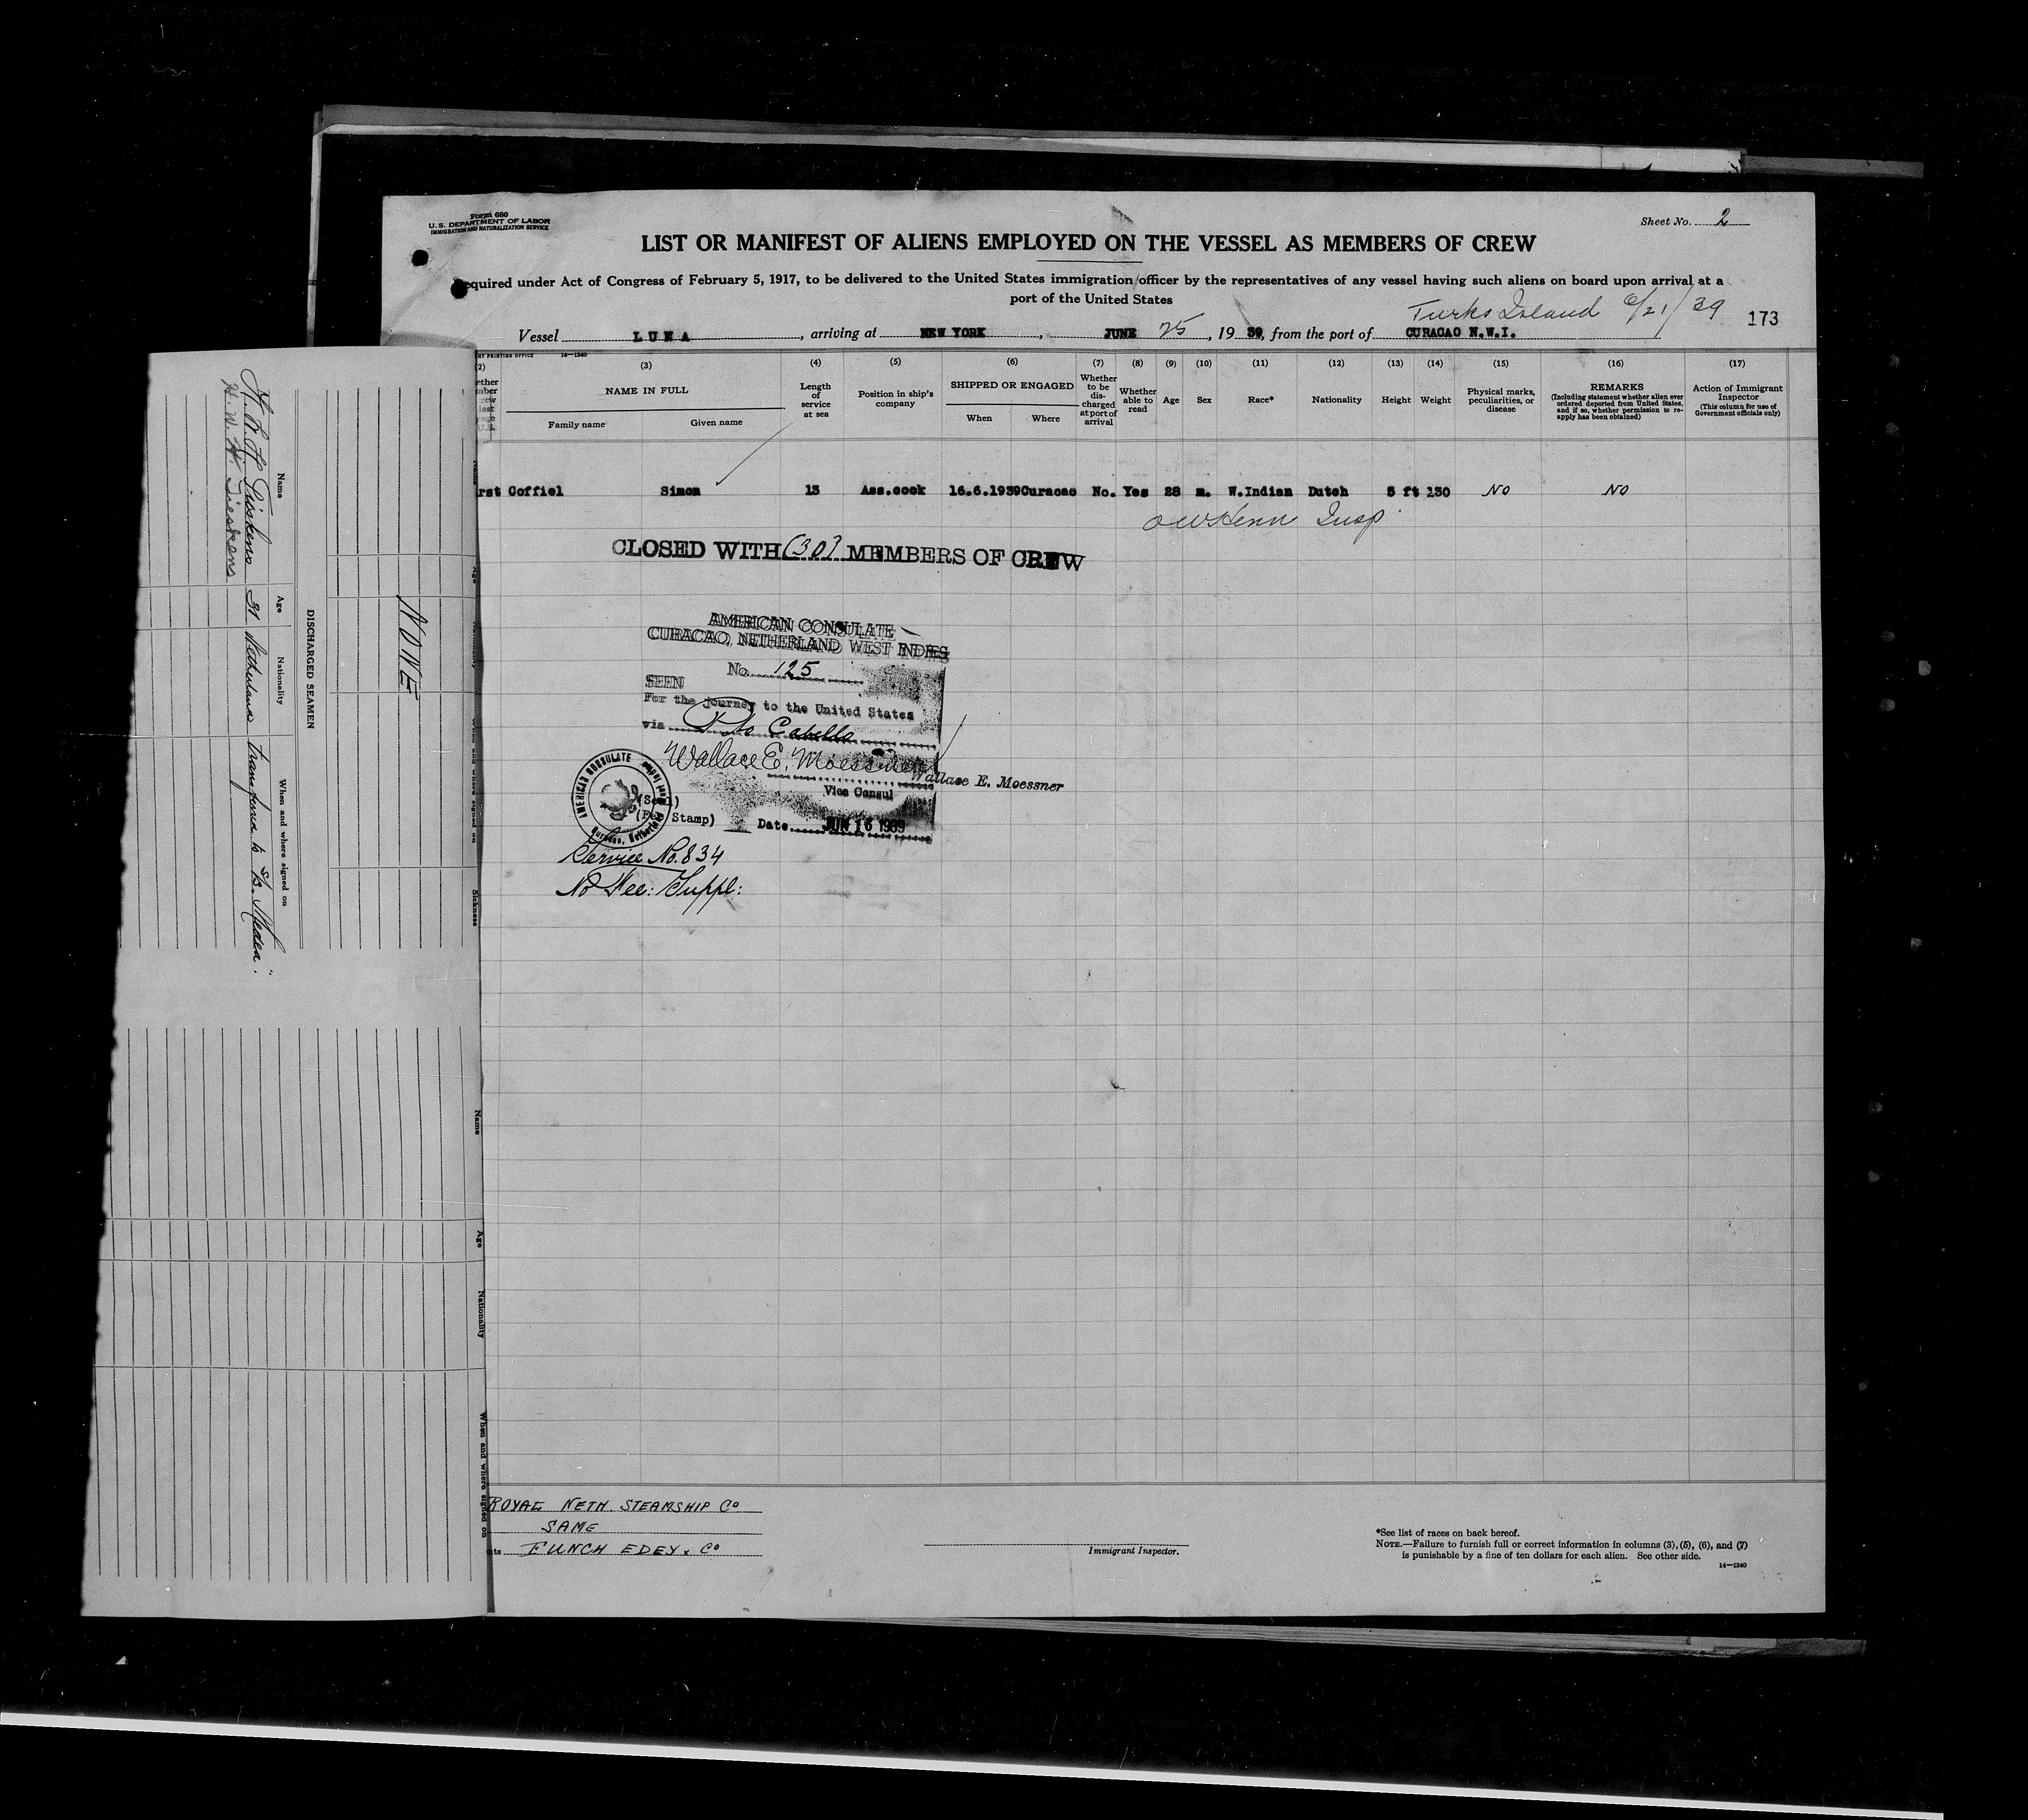 Form 680
U. S. DEPARTMENT OF LABOR
IMMIGRATION AND NATURALIZATION SERVICE
Sheet No. 2
LIST OR MANIFEST OF ALIENS EMPLOYED ON THE VESSEL AS MEMBERS OF CREW
equired under Act of Congress of February 5, 1917, to be delivered to the United States immigration officer by the representatives of any vessel having such aliens on board upon arrival at a
port of the United States
Turks Island 6/21/39
173
Vessel LUNA, arriving at NEW YORK, JUNE 25, 1939, from the port of CURACAO N.W.I.
NT PRINTING OFFICE 14—1240
(2) (3) (4) (5) (6) (7) (8) (9) (10) (11) (12) (13) (14) (15) (16) (17)
NAME IN FULL
Family name Given name
Length of service at sea
Position in ship's company
SHIPPED OR ENGAGED
When Where
Whether to be discharged at port of arrival
Whether able to read
Age
Sex
Race*
Nationality
Height
Weight
Physical marks, peculiarities, or disease
REMARKS
(Including statement whether alien ever ordered deported from United States, and if so, whether permission to reapply has been obtained)
Action of Immigrant Inspector
(This column for use of Government officials only)
rst Coffiel Simon 13 Ass.cook 16.6.1939 Curacao No. Yes 28 m. W.Indian Dutch 5 ft 130 NO NO
Insp
CLOSED WITH (30) MEMBERS OF CREW
AMERICAN CONSULATE
CURACAO, NETHERLAND WEST INDIES
No. 125
SEEN
For the journey to the United States
via Pto Cabello
Wallace E. Moessner
Wallace E. Moessner
Vice Consul
AMERICAN CONSULATE
(Seal)
Stamp)
Date JUN 16 1939
Service No. 834
No Fee: Suppl:
ROYAL NETH. STEAMSHIP Co
SAME
nts FUNCH EDEY & Co
Immigrant Inspector.
*See list of races on back hereof.
NOTE.—Failure to furnish full or correct information in columns (3), (5), (6), and (7)
is punishable by a fine of ten dollars for each alien. See other side.
14—1240
NONE
DISCHARGED SEAMEN
Name Age Nationality When and where signed on
31 Netherland transferred to s/s. "Medea".
H. W. H. Tieskens
Age
Sickness
Name
Age
Nationality
When and where signed on